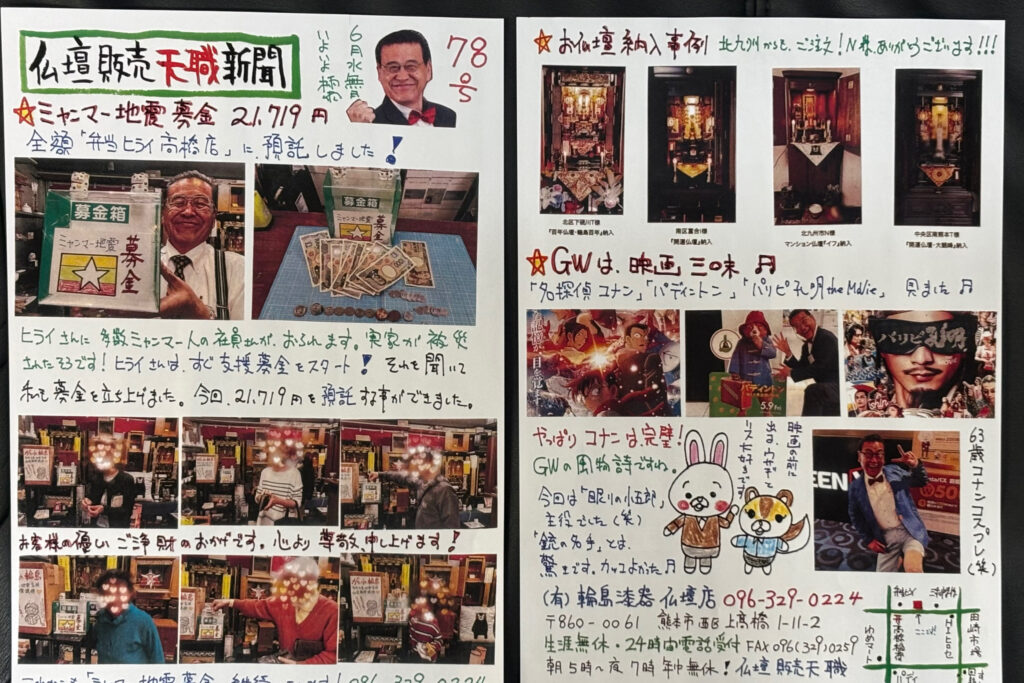 仏壇販売天職新聞
6月水無月
いよいよ梅雨
78号
☆ミャンマー地震募金 21,719円
全額「弁当ヒライ高橋店」に、預託しました!
募金箱
ミャンマー地震
募金
募金箱
ミャンマー地震
募金
ヒライさんに多数ミャンマー人の社員さんが、おられます。実家が被災
されたそうです!ヒライさんは、すぐ支援募金をスタート!それを聞いて
私も募金を立ち上げました。今回、21,719円を預託する事ができました。
お客様の優しいご浄財のおかげです。心より尊敬申し上げます!
☆お仏壇納入事例 北九州からも、ご注文!N様、ありがとうございます!!!
北区下硯川T様
「百年仏壇・輪島百年」納入
南区富合I様
「開運仏壇」納入
北九州市N様
マンション仏壇「イフ」納入
中央区南熊本T様
☆GWは、映画三昧♬
「名探偵コナン」「パディントン」「パリピ孔明 the Movie」見ました♬
パディントン
5.9 Fri
パリピ孔明
やっぱりコナンは完璧!
GWの風物詩ですね。
今回は「眠りの小五郎」
主役でした(笑)
「銃の名手」とは、
驚きです。カッコよかった♬
映画の前に
出る、ウサギと
リス大好きです
63歳コナンコスプレ(笑)
(有)輪島漆器仏壇店 096-329-0224
〒860-0061 熊本市西区上高橋1-11-2
生涯無休・24時間電話受付 FAX096(329)0259
朝5時〜夜7時年中無休!仏壇販売天職
田崎市場
ゆめマート
ここだ